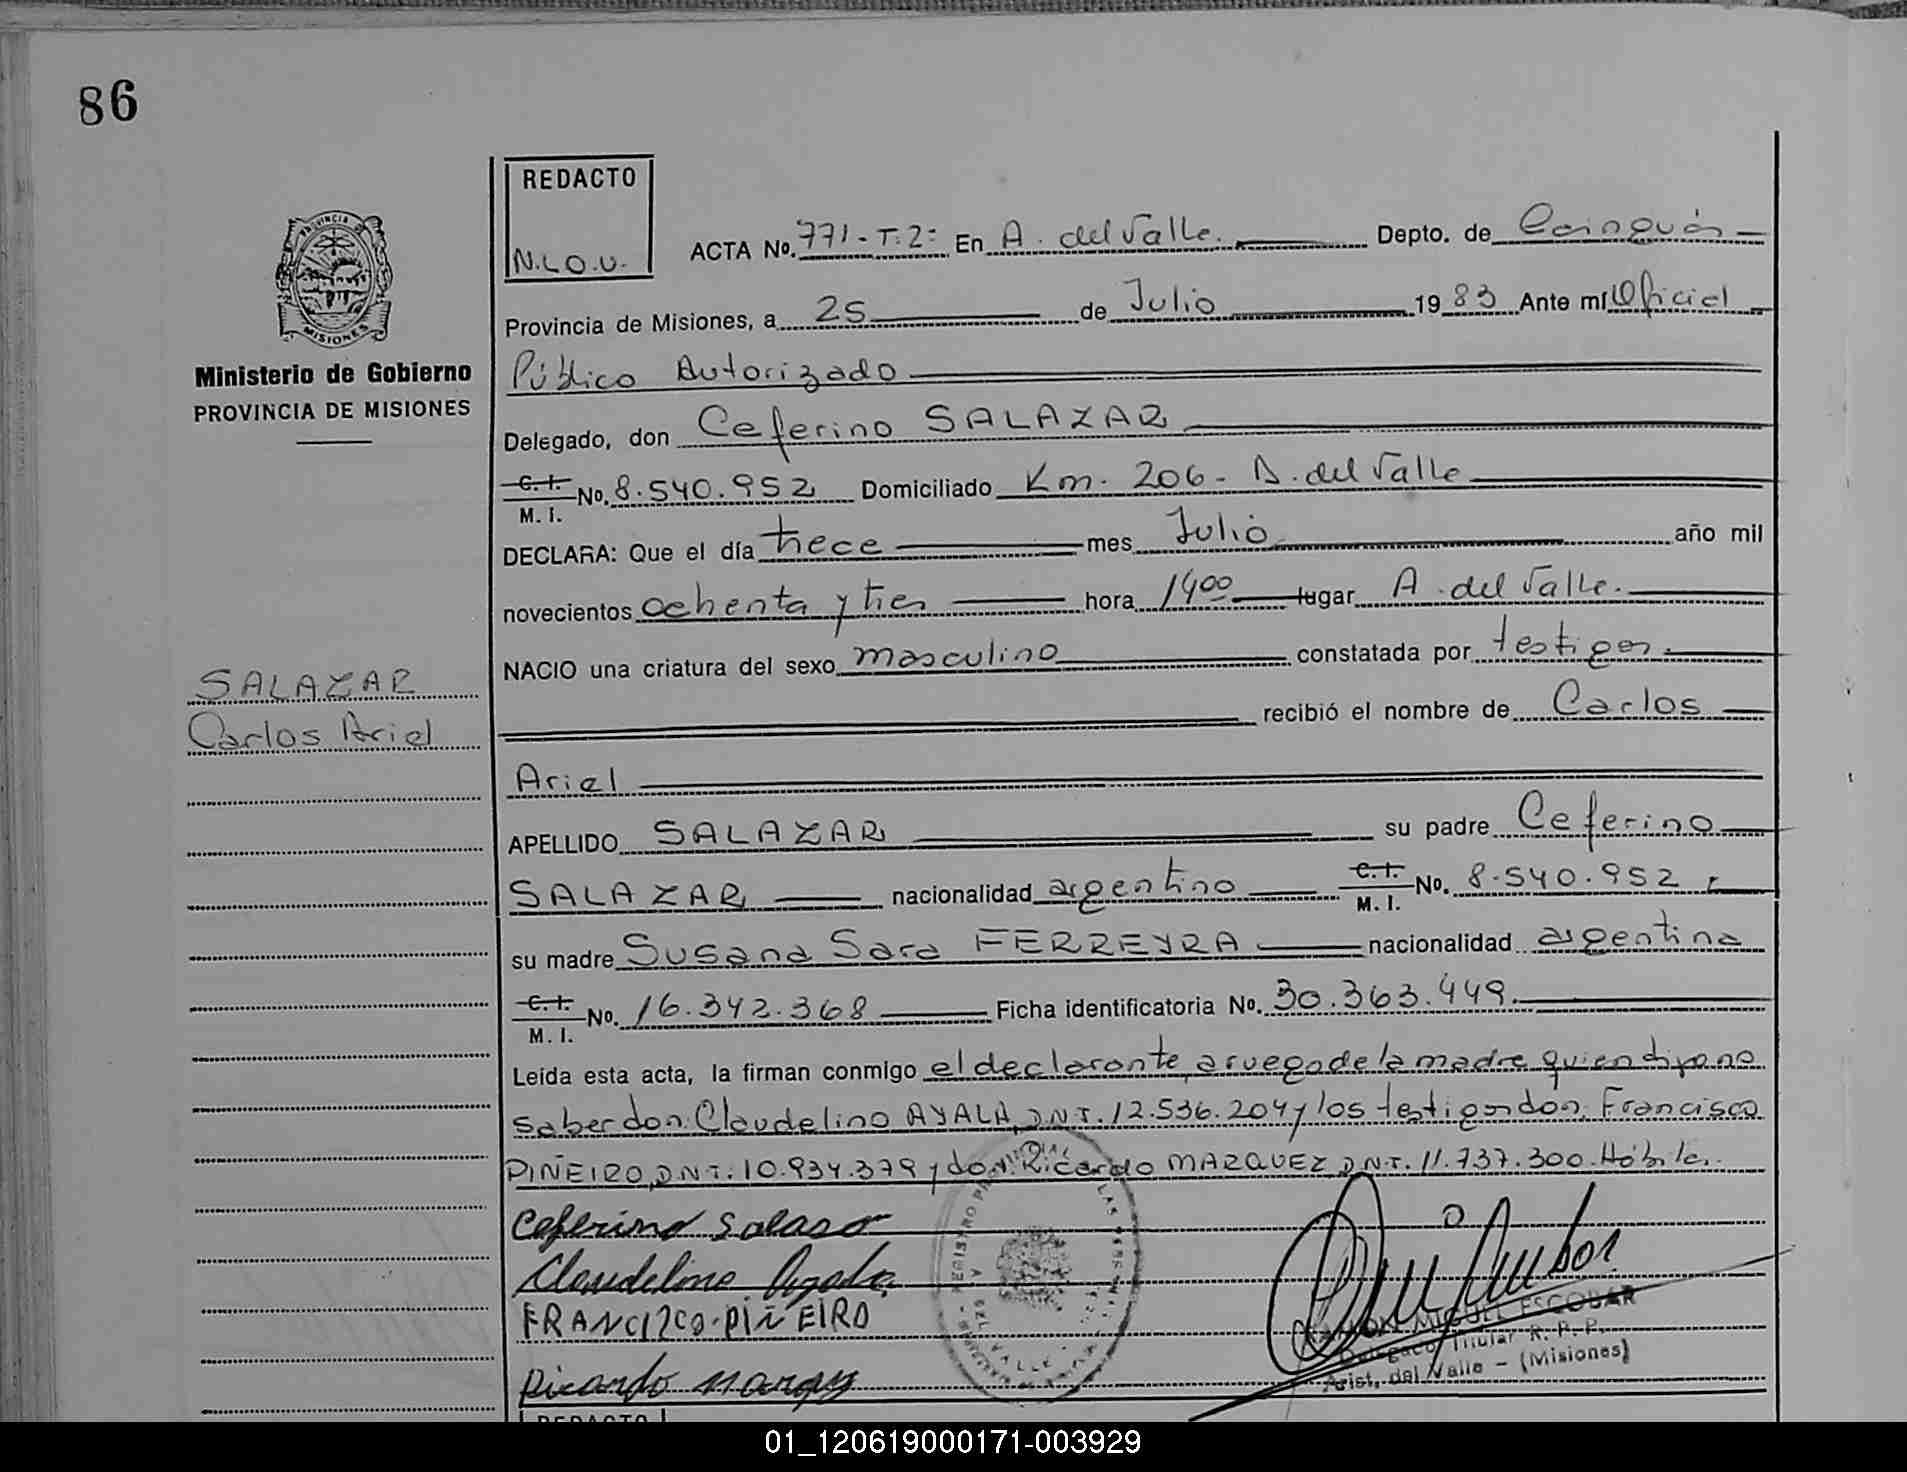 86
REDACTO
N.L.O.U.
ACTA No. 771-T:2= En A. del Valle. Depto. de Cainguás
Provincia de Misiones, a 25 de Julio 1983 Ante mí Oficial
Público Autorizado
Ministerio de Gobierno
PROVINCIA DE MISIONES
Delegado, don Ceferino SALAZAR
C. I. M. I. No. 8.540.952 Domiciliado Km. 206 - A. del Valle
DECLARA: Que el día trece mes Julio año mil
novecientos ochenta y tres hora 14⁰⁰ lugar A. del Valle.
NACIO una criatura del sexo masculino constatada por testigos.
SALAZAR
Carlos Ariel
recibió el nombre de Carlos
Ariel
APELLIDO SALAZAR su padre Ceferino
SALAZAR nacionalidad argentino C. I. M. I. No. 8.540.952
su madre Susana Sara FERREYRA nacionalidad argentina
C. I. M. I. No. 16.342.368 Ficha identificatoria No. 30.363.449.
Leída esta acta, la firman conmigo el declarante, a ruego de la madre quien dijo no
saber don: Claudelino AYALA, D.N.I. 12.536.204 y los testigos don: Francisco
PIÑEIRO, D.N.I.: 10.934.379 y don: Ricardo MARQUEZ, D.N.I. 11.737.300. Hábiles.
Ceferino Salasar
Claudelino Ayala
FRANCIZCO PIÑEIRO
Ricardo
RAMON MIGUEL ESCOBAR
Delegado Titular R. P. P.
Arist. del Valle - (Misiones)
REDACTO
01_120619000171-003929